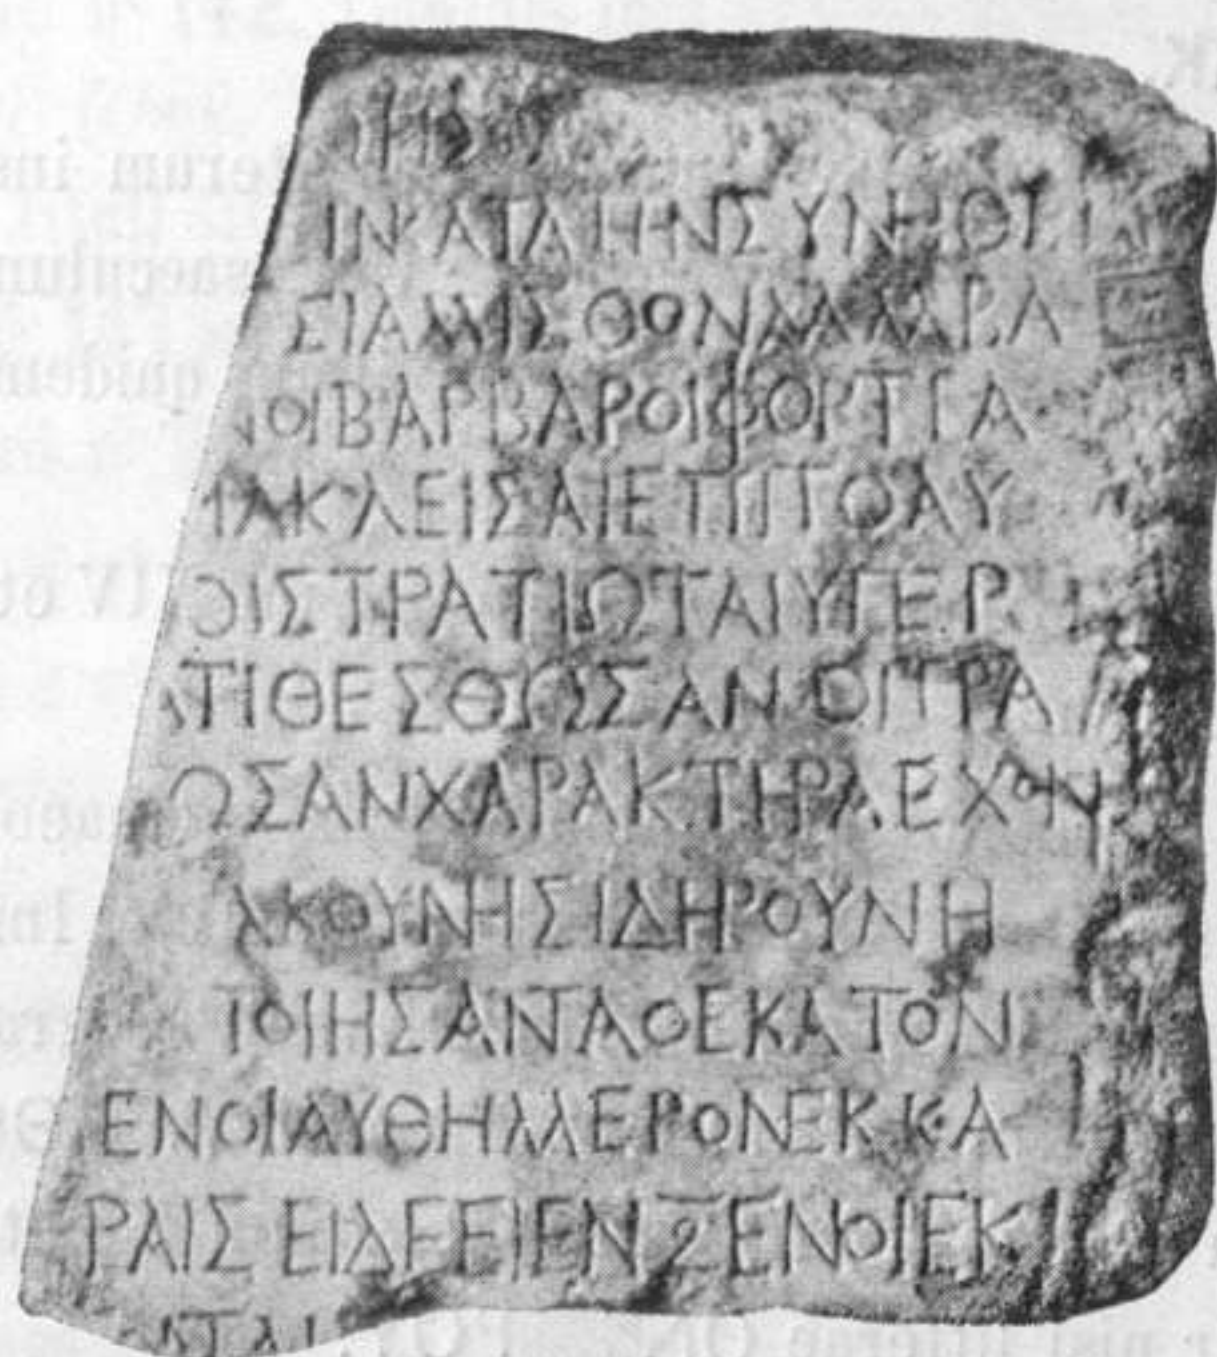 ΗΣ
ΙΝΚΑΤΑΤΗΝΣΥΝΗΘΕΙΑΝ
ΣΙΑΜΙΣΘΟΝΛΑΜΒΑ
ΝΟΙΒΑΡΒΑΡΟΙΦΟΡΤΓΑ
ΙΑΚΛΕΙΣΑΙΕΠΙΤΟΑΥ
ΟΙΣΤΡΑΤΙΩΤΑΙΥΠΕΡ
ΑΤΙΘΕΣΘΩΣΑΝΟΙΠΡΑ
ΩΣΑΝΧΑΡΑΚΤΗΡΑΕΧΟΝ
ΑΚΟΥΝΗΣΙΔΗΡΟΥΝΗ
ΠΟΙΗΣΑΝΤΑΟΕΚΑΤΟΝ
ΕΝΟΙΑΥΘΗΜΕΡΟΝΕΚΚΑ
ΡΑΙΣΕΙΔΕΕΙΕΝΞΕΝΟΙΕΚ
ΝΤΑΙ